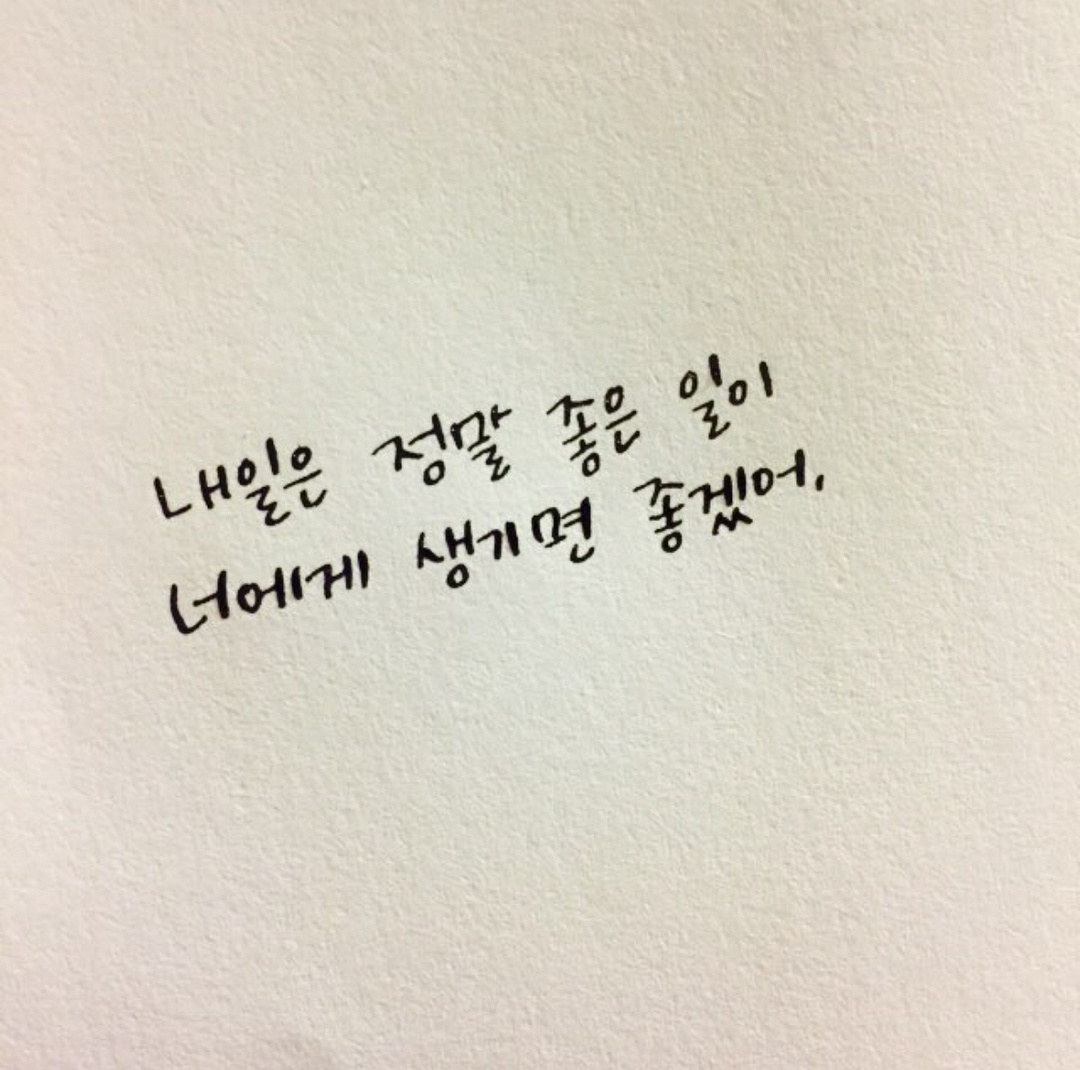 내일은 정말 좋은 일이
너에게 생기면 좋겠어.